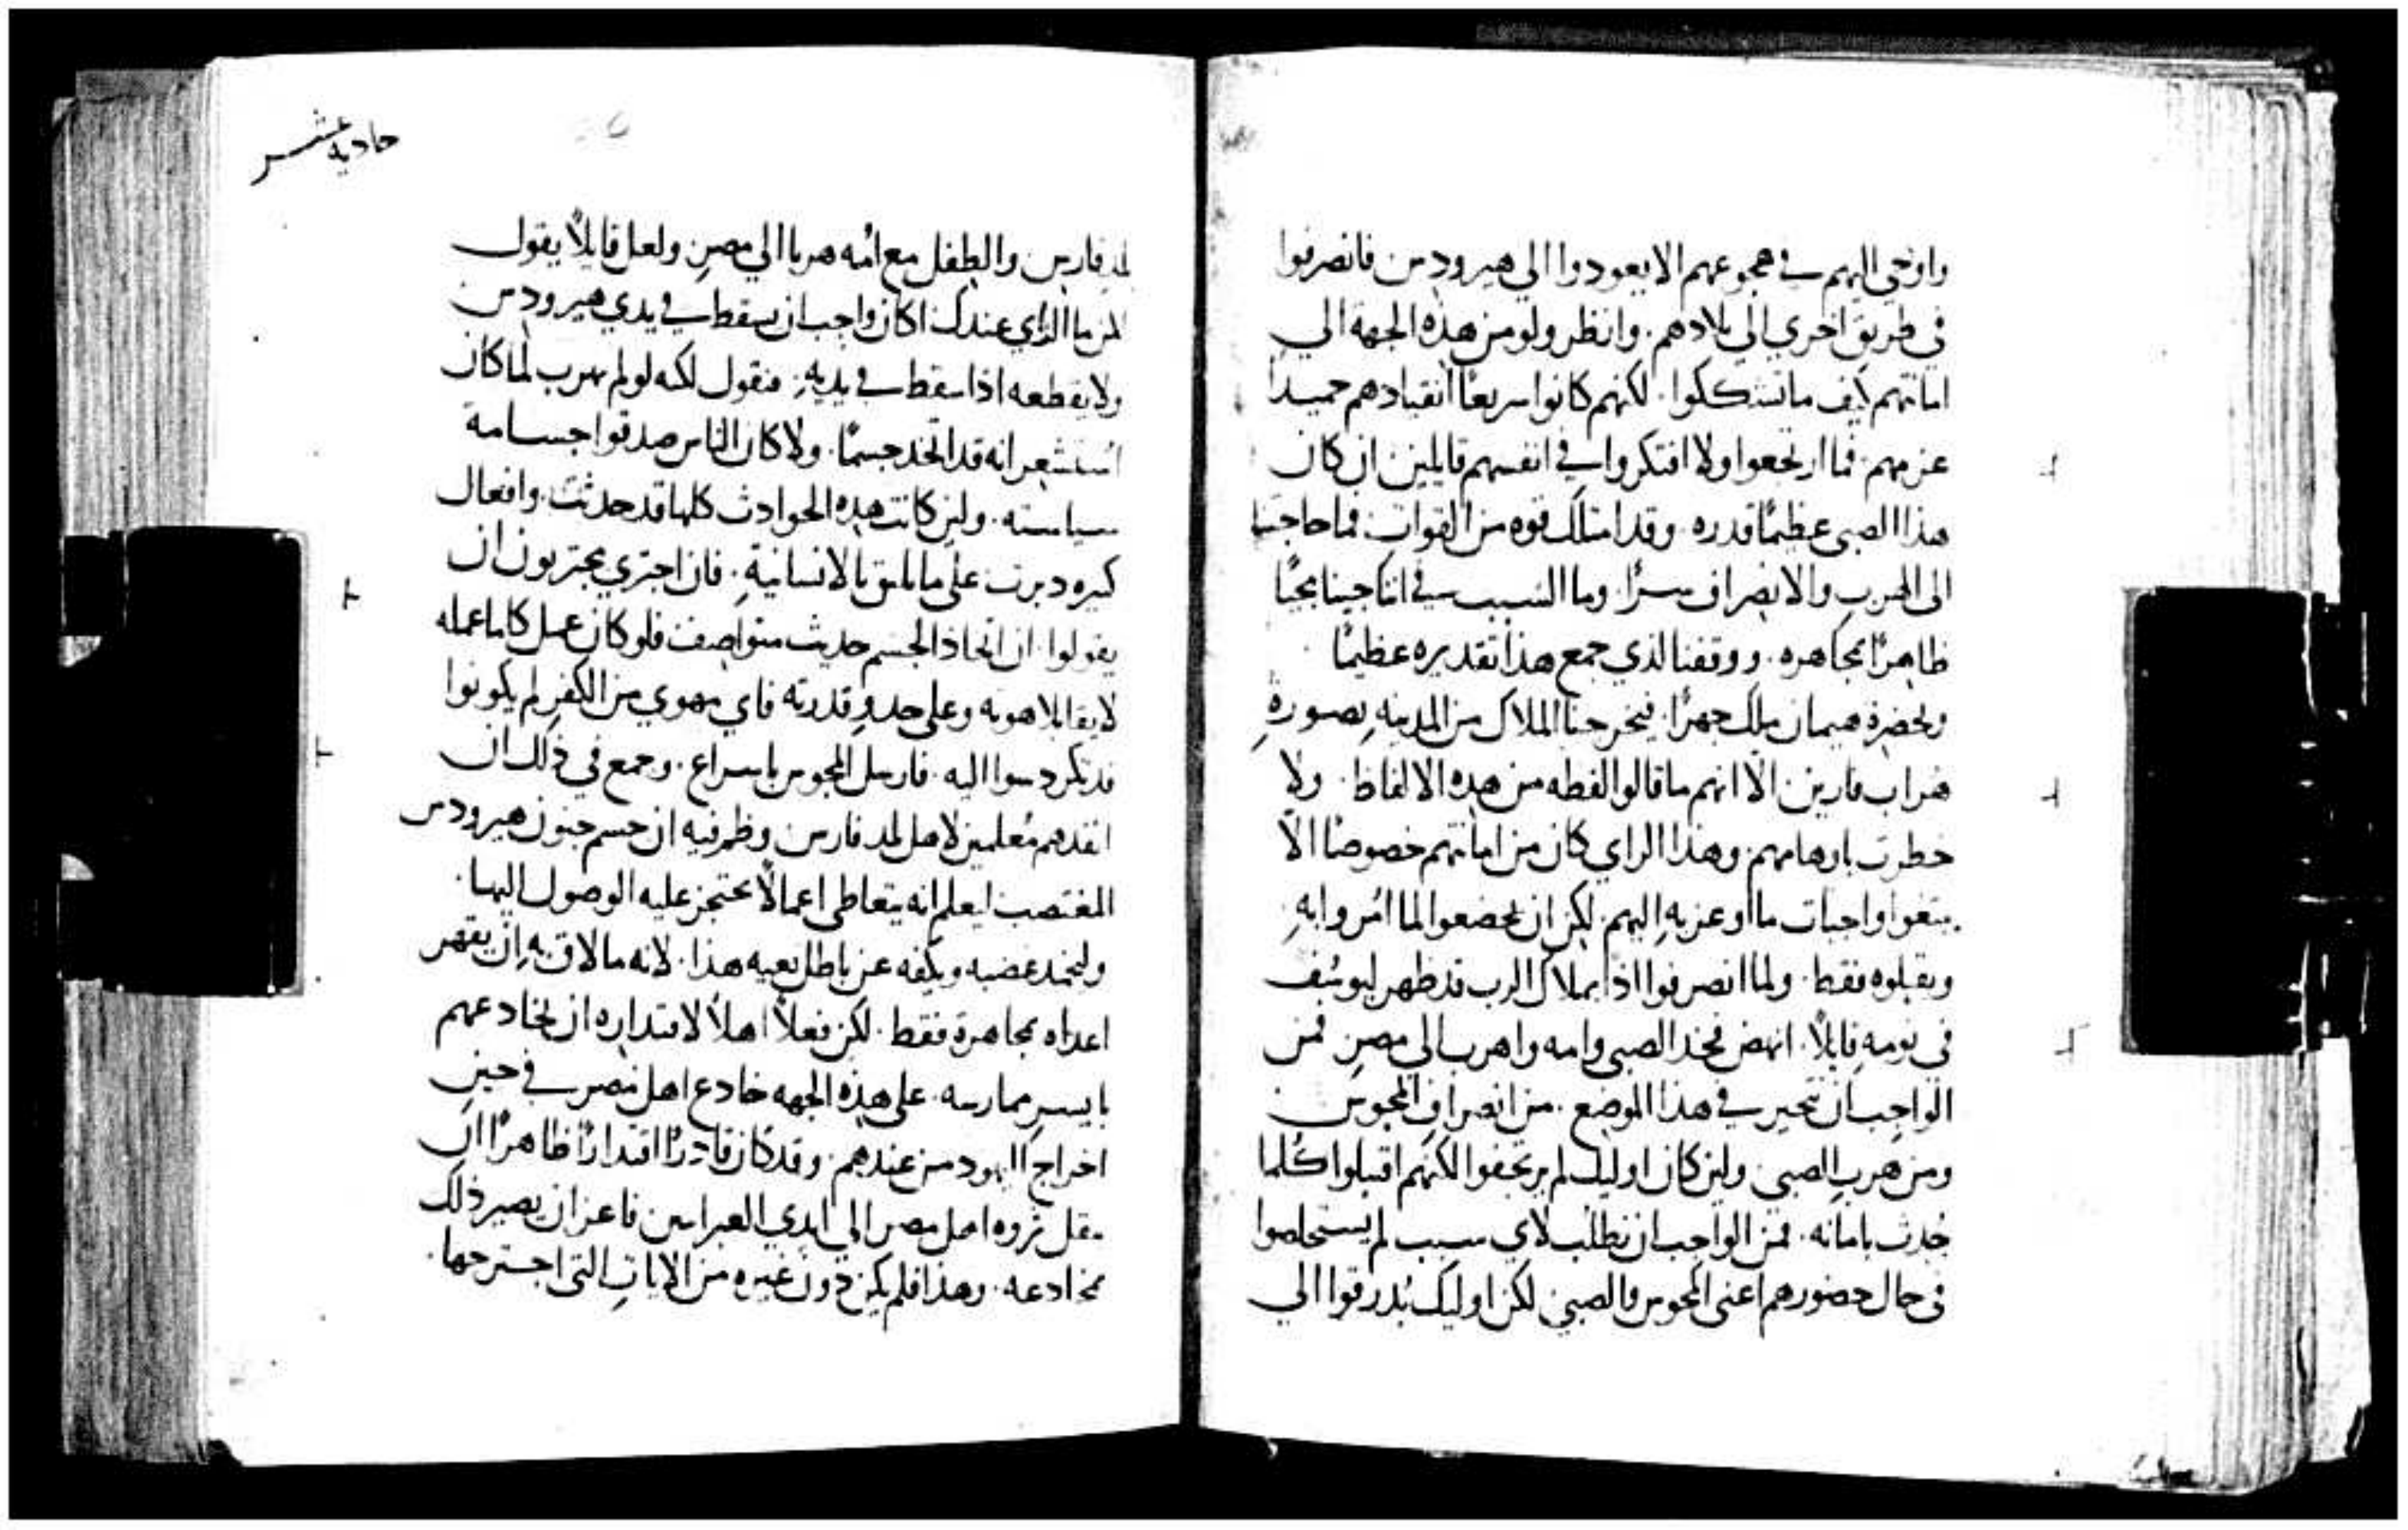 واوحي اليهم في هجوعهم الا يعودوا الي هيرودس فانصرفوا
في طريق اخري الي بلادهم. وانظر ولو من هذه الجهة الي
امانتهم كيف ما تشككوا. لكنهم كانوا سريعًا انقيادهم حميدا
عزمهم. فما ارتجعوا ولا افتكروا في انفسهم قايلين. ان كان
هذا الصبي عظيمًا قدره. وقد امتلك قوه من القوات. فما حاجتنا
الى الهرب والانصراف سرًا. وما السبب في اننا جينا مجيًا
ظاهرًا مجاهره. ووقفنا لذي جمع هذا تقديره عظيمًا
وبحضرة هيمان ملك جهرًا. فيخرجنا الملاك من المدينه بصورة
هراب فارين. الّا انهم ما قالوا لفظه من هذه الالفاظ. ولا
خطرت باوهامهم. وهذا الراي كان من امانتهم خصوصًا الّا
يبتغوا واجبات ما اوعز به اليهم. لكن ان يخضعوا لما امُروا به
ويقبلوه فقط. ولما انصرفوا اذا بملاك الرب قد ظهر ليوسُف
في نومه قايلاً. انهض فخذ الصبي وامه واهرب الى مصر. فمن
الواجب ان نتحير في هذا الموضع. من انصراف المجوس
ومن هرب الصبي. ولين كان اوليك لم يرتجفوا لكنهم اقتبلوا كُلما
حُدث بامانه. فمن الواجب ان نطلب لاي سبب لم يستخلصوا
في حال حضورهم اعني المجوس والصبي. لكن اوليك بُدرقوا الي
حاديه عشر
بلد فارس والطفل مع امُه هربا الي مصر. ولعل قايلاً يقول
لمن ما الراي عندك اكان واجب ان يسقط في يدي هيرودس
ولا يقطعه اذا سقط في يديه. فنقول لكه لو لم يهرب لما كان
استشعر انه قد اتخذ جسمًا. ولا كان الناس صدقوا جسامة
سياسته. ولين كانت هذه الحوادث كلها قد حدثت. وافعال
كيره دبرت على ما يليق بالانسانية. فان اجتري مجترون ان
يقولوا. ان اتخاذ الجسم حديث متواصف فلو كان عمل كلما عمله
لايقا بلاهوته وعلى حدو قدرته فاي مهوي من الكفر لم يكونوا
قد تكردسوا اليه. فارسل المجوس باسراع. وجمع في ذلك ان
انفدهم مُعلمين لاهل بلد فارس. وظهر فيه ان حسم جنون هيرودس
المغتصب ليعلم انه يتعاطى اعمالاً يحتجز عليه الوصول اليها.
وليخمد غضبه ويكفه عن باطل بغيه هذا. لانه ما لاق به ان يقهر
اعداه مجاهرة فقط. لكن فعلاً اهلاً لاقتداره ان يخادعهم
بايسر ممارسه. على هذه الجهه خادع اهل مصر في حين
اخراج اليهود من عندهم. وقد كان قادرًا اقتدارًا ظاهرًا ان
ينقل ثروه اهل مصر الي ايدي العبرانيين فاعز ان يصير ذلك
مخادعه. وهذا فلم يكن دون غيره من الايات التي اجترحها.